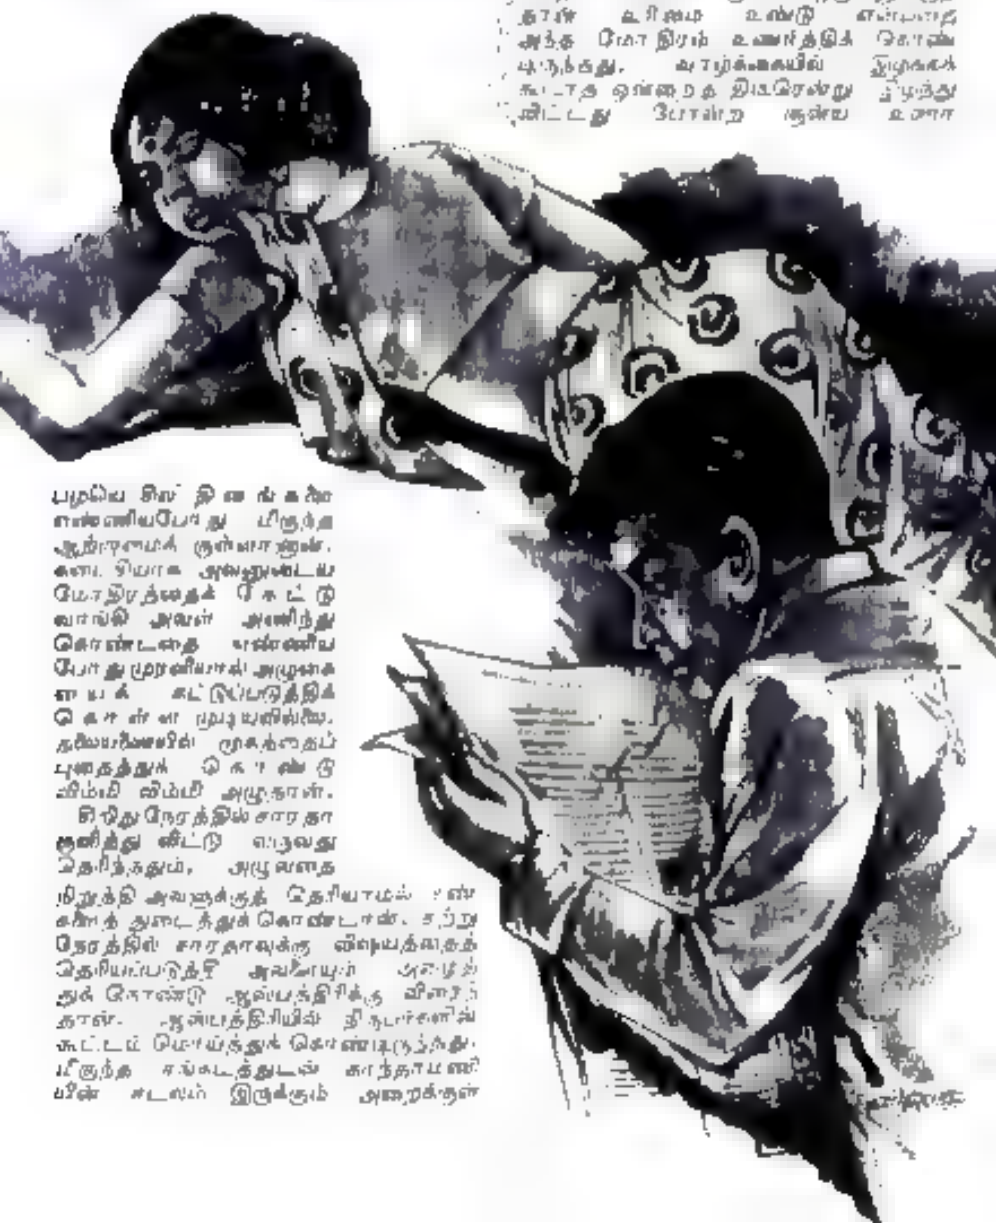 தான் உரிமை உண்டு என்பதை
அந்த மோதிரம் உணர்த்திக் கொண்
டிருந்தது. வாழ்க்கையில் இழக்கக்
கூடாத ஒன்றைத் திடீரென்று இழந்து
விட்டது போன்ற சூன்ய உணர்
பழைய சில தினங்களை
எண்ணியபோது மிகுந்த
ஆற்றாமைக் குள்ளானான்.
கடைசியாக அவனுடைய
மோதிரத்தைக் கேட்டு
வாங்கி அவள் அணிந்து
கொண்டதை எண்ணிய
போது முரளியால் அழுகை
யைக் கட்டுப்படுத்திக்
கொள்ள முடியவில்லை.
தலையணையில் முகத்தைப்
புதைத்துக் கொண்டு
விம்மி விம்மி அழுதான்.
சிறிது நேரத்தில் சாரதா
குளித்து விட்டு வருவது
தெரிந்ததும், அழுவதை
நிறுத்தி அவளுக்குத் தெரியாமல் கண்
களைத் துடைத்துக் கொண்டான். சற்று
நேரத்தில் சாரதாவுக்கு விஷயத்தைத்
தெரியப்படுத்தி அவளையும் அழைத்
துக் கொண்டு ஆஸ்பத்திரிக்கு விரைந்
தான். ஆஸ்பத்திரியில் நிருபர்களின்
கூட்டம் மொய்த்துக் கொண்டிருந்தது.
மிகுந்த சங்கடத்துடன் காந்தாமணி
யின் சடலம் இருக்கும் அறைக்குள்